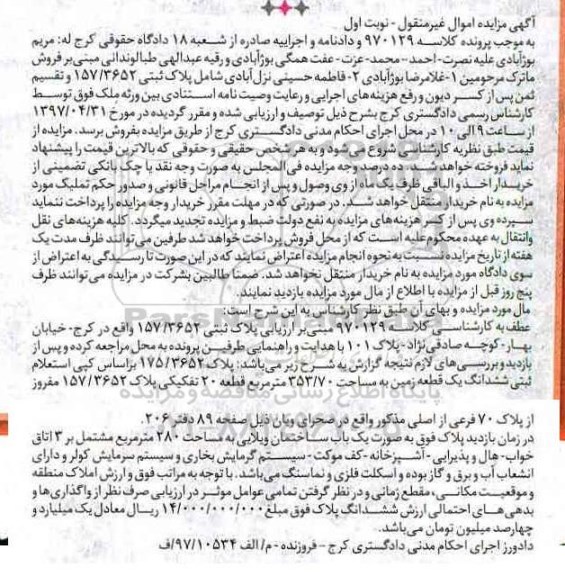 آگهی مزایده اموال غیرمنقول - نوبت اول
به موجب پرونده کلاسه ۹۷۰۱۲۹ و دادنامه و اجراییه صادره از شعبه ۱۸ دادگاه حقوقی کرج له: مریم
بوژآبادی علیه نصرت - احمد - محمد - عزت - عفت همگی بوژآبادی و رقیه عبدالهی طبالوندانی مبنی بر فروش
ماترک مرحومین ۱-غلامرضا بوژآبادی ۲-فاطمه حسینی نزل‌آبادی شامل پلاک ثبتی ۱۵۷/۳۶۵۲ و تقسیم
ثمن پس از کسر دیون و رفع هزینه‌های اجرایی و رعایت وصیت نامه استنادی بین ورثه ملک فوق توسط
کارشناس رسمی دادگستری کرج بشرح ذیل توصیف و ارزیابی شده و مقرر گردیده در مورخ ۱۳۹۷/۰۴/۳۱
از ساعت ۹ الی ۱۰ در محل اجرای احکام مدنی دادگستری کرج از طریق مزایده بفروش برسد. مزایده از
قیمت طبق نظریه کارشناسی شروع می‌شود و به هر شخص حقیقی و حقوقی که بالاترین قیمت را پیشنهاد
نماید فروخته خواهد شد. ده درصد وجه مزایده فی‌المجلس به صورت وجه نقد یا چک بانکی تضمینی از
خریدار اخذ و الباقی ظرف یک ماه از وی وصول و پس از انجام مراحل قانونی و صدور حکم تملیک مورد
مزایده به نام خریدار منتقل خواهد شد. در صورتی که در مهلت مقرر خریدار وجه مزایده را پرداخت ننماید
سپرده وی پس از کسر هزینه‌های مزایده به نفع دولت ضبط و مزایده تجدید میگردد. کلیه هزینه‌های نقل
وانتقال به عهده محکوم‌علیه است که از محل فروش پرداخت خواهد شد طرفین می‌توانند ظرف مدت یک
هفته از تاریخ مزایده نسبت به نحوه انجام مزایده اعتراض نمایند که در این صورت تا رسیدگی به اعتراض از
سوی دادگاه مورد مزایده به نام خریدار منتقل نخواهد شد. ضمنا طالبین بشرکت در مزایده می‌توانند ظرف
پنج روز قبل از مزایده با اطلاع از مال مورد مزایده بازدید نمایند.
مال مورد مزایده و بهای آن طبق نظر کارشناس به این شرح است:
عطف به کارشناسی کلاسه ۹۷۰۱۲۹ مبنی بر ارزیابی پلاک ثبتی ۱۵۷/۳۶۵۲ واقع در کرج - خیابان
بهار - کوچه صادقی‌نژاد - پلاک ۱۰۱ با هدایت و راهنمایی طرفین پرونده به محل مراجعه کرده و پس از
بازدید و بررسی‌های لازم نتیجه گزارش به شرح زیر می‌باشد: پلاک ۱۷۵/۳۶۵۲ براساس کپی استعلام
ثبتی ششدانگ یک قطعه زمین به مساحت ۳۵۳/۷۰ مترمربع قطعه ۲۰ تفکیکی پلاک ۱۵۷/۳۶۵۲ مفروز
از پلاک ۷۰ فرعی از اصلی مذکور واقع در صحرای ویان ذیل صفحه ۸۹ دفتر ۲۰۶.
در زمان بازدید پلاک فوق به صورت یک باب ساختمان ویلایی به مساحت ۲۸۰ مترمربع مشتمل بر ۳ اتاق
خواب - هال و پذیرایی - آشپزخانه - کف موکت - سیستم گرمایش بخاری و سیستم سرمایش کولر و دارای
انشعاب آب و برق و گاز بوده و اسکلت فلزی و نماسنگ می‌باشد. با توجه به مراتب فوق و ارزش املاک منطقه
و موقعیت مکانی، مقطع زمانی و در نظر گرفتن تمامی عوامل موثر در ارزیابی صرف نظر از واگذاری‌ها و
بدهی‌های احتمالی ارزش ششدانگ پلاک فوق مبلغ ۱۴/۰۰۰/۰۰۰/۰۰۰ ریال معادل یک میلیارد و
چهارصد میلیون تومان می‌باشد.
دادورز اجرای احکام مدنی دادگستری کرج - فروزنده - م/الف ۹۷/۱۰۵۳۴/ف